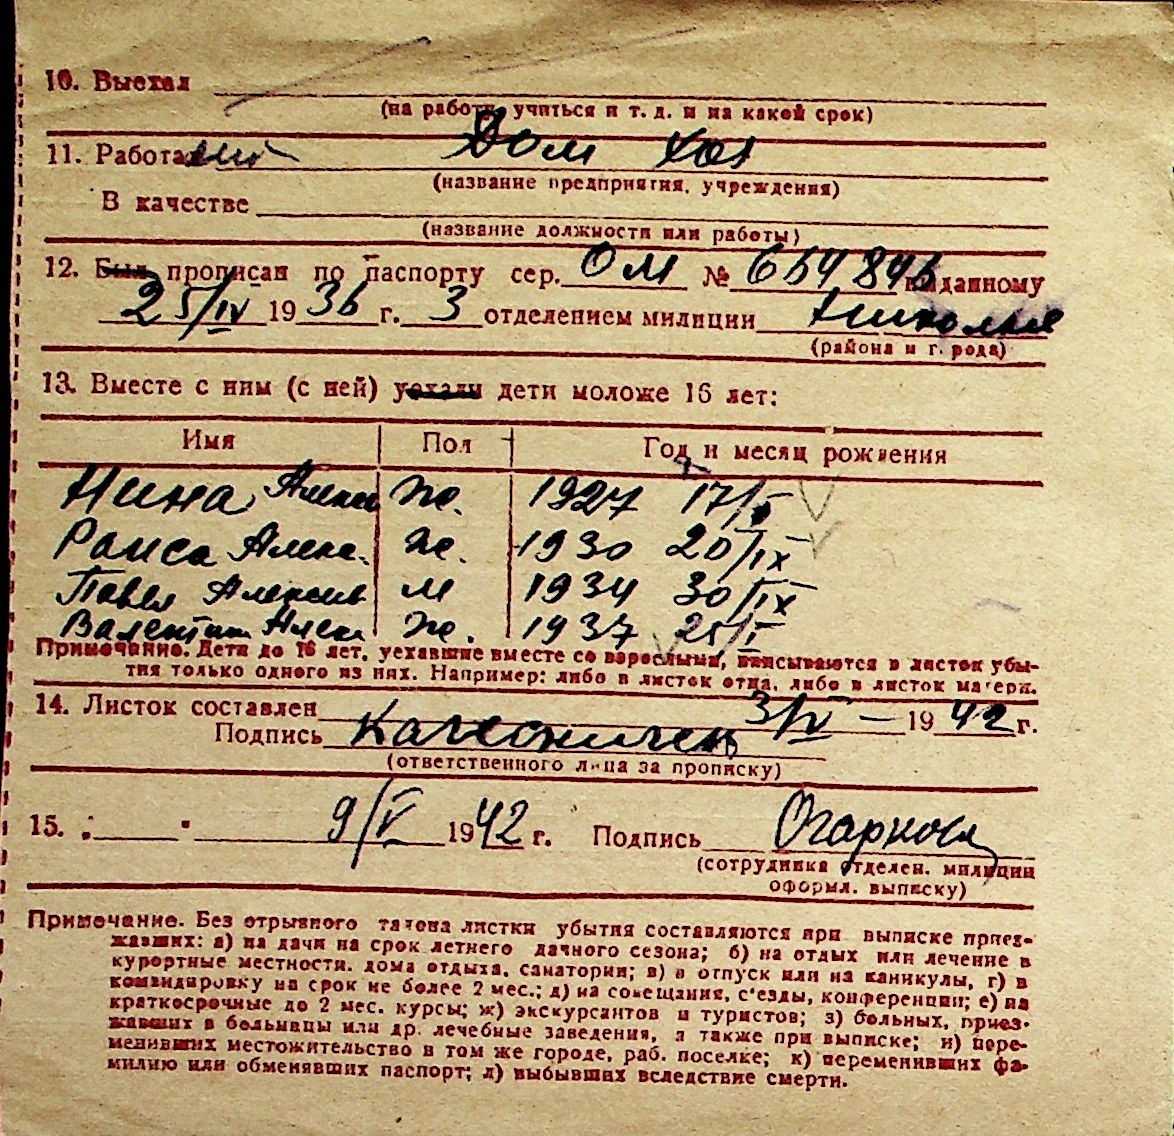 10. Выехал
(на работу, учиться и т. д. и на какой срок)
11. Работа Дом хоз
(название предприятия, учреждения)
В качестве
(название должности или работы)
12. Был прописан по паспорту сер. ОМ № 654846 выданному
25/IV 1936 г. 3 отделением милиции
(района и города)
13. Вместе с ним (с ней) уехали дети моложе 16 лет:
Имя Пол Год и месяц рождения
Нина Алекс ж. 1927 17/X
Раиса Алекс. ж. 1930 20/IX
Павел Алексеев м 1934 30/IX
Валентин Алекс ж. 1937 25/I
Примечание. Дети до 16 лет, уехавшие вместе со взрослыми, вписываются в листок убы-
тия только одного из них. Например: либо в листок отца, либо в листок матери.
14. Листок составлен 3/IV – 1942 г.
Подпись
(ответственного лица за прописку)
15. 9/V 1942 г. Подпись Огаркова
(сотрудника отделен. милиции
оформл. выписку)
Примечание. Без отрывного талона листки убытия составляются при выписке приез-
жавших: а) на дачи на срок летнего дачного сезона; б) на отдых или лечение в
курортные местности, дома отдыха, санатории; в) в отпуск или на каникулы, г) в
командировку на срок не более 2 мес.; д) на совещания, с'езды, конференции; е) на
краткосрочные до 2 мес. курсы; ж) экскурсантов и туристов; з) больных, приез-
жавших в больницы или др. лечебные заведения, а также при выписке; и) пере-
менивших местожительство в том же городе, раб. поселке; к) переменивших фа-
милию или обменявших паспорт; л) выбывших вследствие смерти.